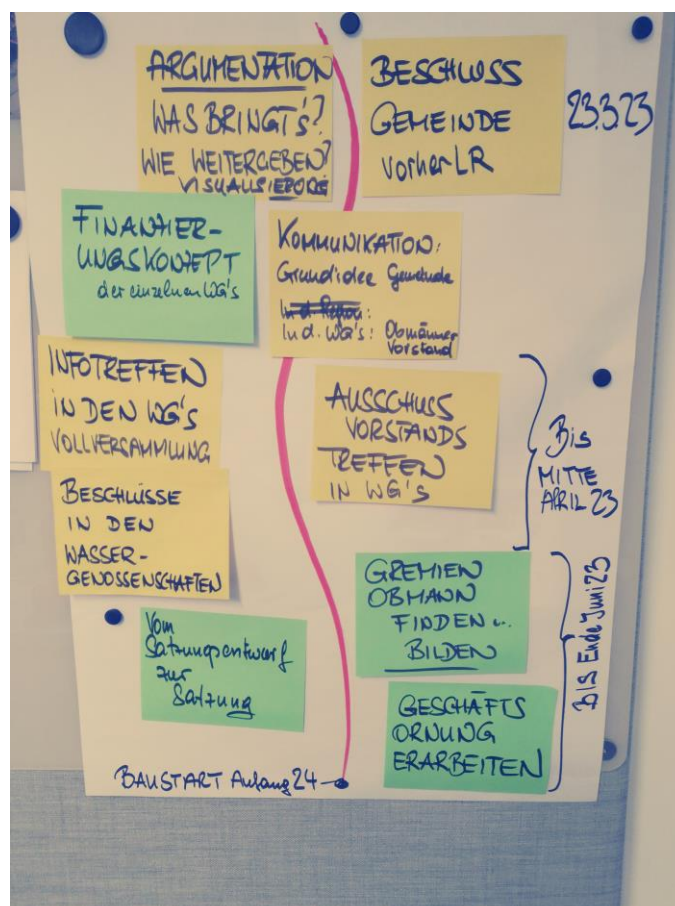 ARGUMENTATION
WAS BRINGT'S?
WIE WEITERGEBEN?
VISUALISIERUNG
BESCHLUSS
GEMEINDE
vorher LR
23.3.23
FINANZIER-
UNGSKONZEPT
der einzelnen WG's
KOMMUNIKATION:
Grundidee Gemeinde
In d. Region:
In d. WG's: Obmänner
Vorstand
INFOTREFFEN
IN DEN WG'S
VOLLVERSAMMLUNG
AUSSCHUSS
VORSTANDS
TREFFEN
IN WG'S
Bis
MITTE
APRIL 23
BESCHLÜSSE
IN DEN
WASSER-
GENOSSENSCHAFTEN
GREMIEN
OBMANN
FINDEN u.
BILDEN
BIS Ende Juni 23
Vom
Satzungsentwurf
zur
Satzung
GESCHÄFTS
ORNUNG
ERARBEITEN
BAUSTART Anfang 24